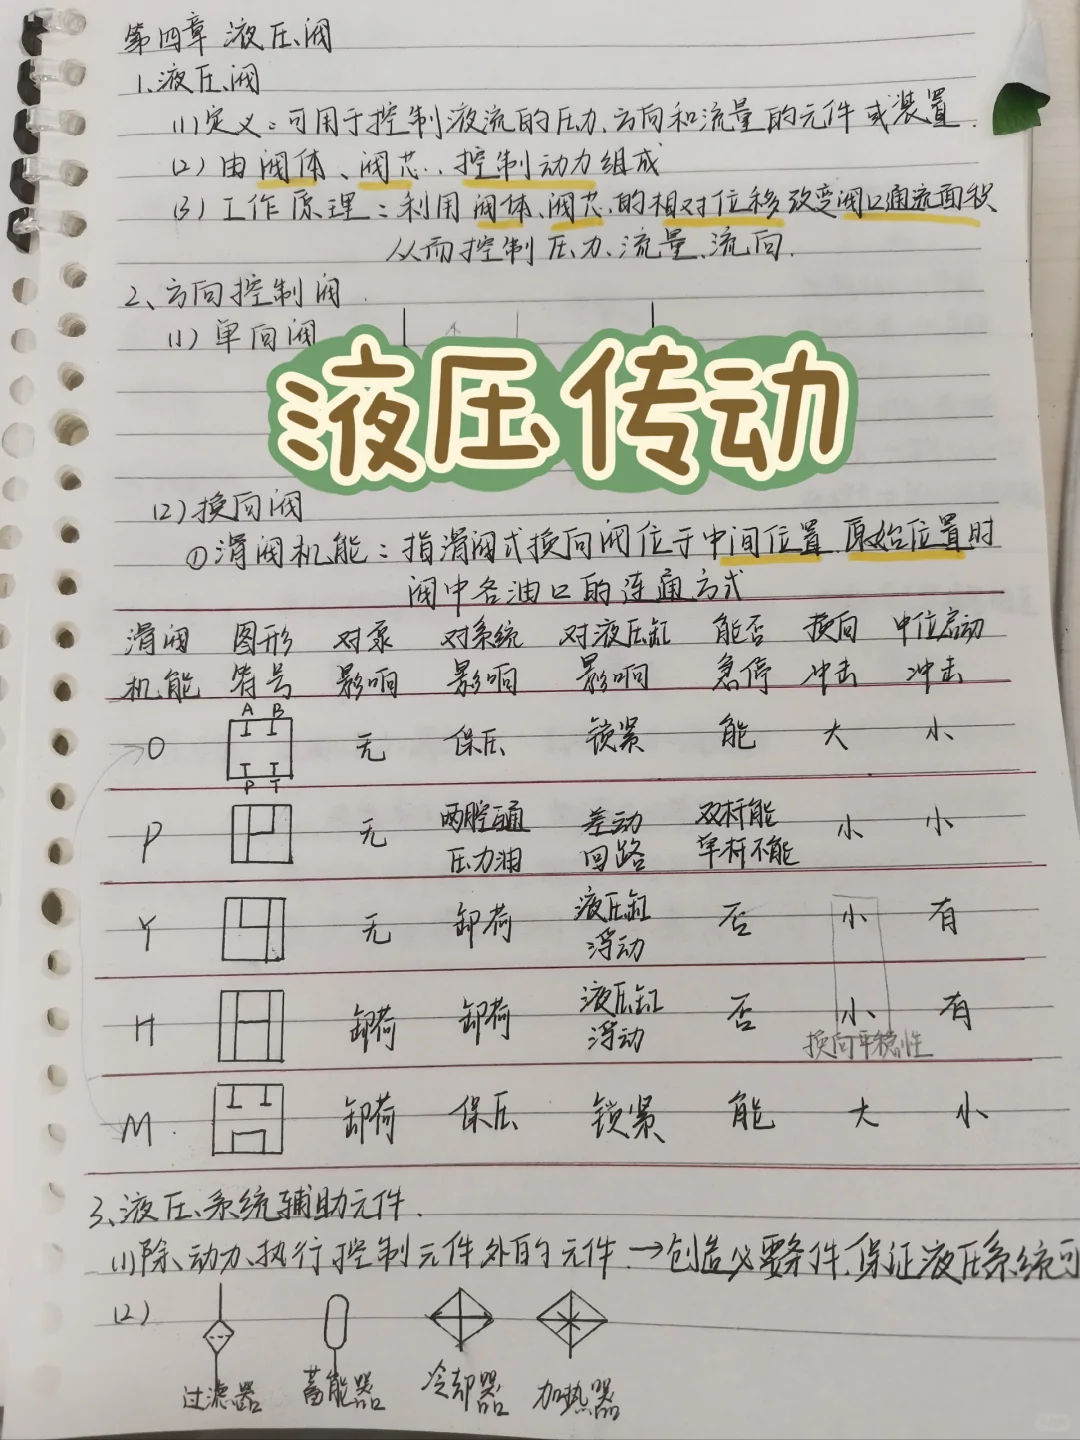 第四章 液压阀
1.液压阀
(1)定义:可用于控制液流的压力、方向和流量的元件或装置.
(2)由阀体、阀芯、控制动力组成
(3)工作原理:利用阀体、阀芯的相对位移改变阀口通流面积
从而控制压力、流量、流向.
2、方向控制阀.
(1)单向阀
液压传动
(2)换向阀
①滑阀机能:指滑阀式换向阀位于中间位置、原始位置时
阀中各油口的连通方式
滑阀机能 图形符号 对泵影响 对系统影响 对液压缸影响 能否急停 换向冲击 中位启动冲击
A B
O 无 保压 锁紧 能 大 小
P T
P 无 两腔通压力油 差动回路 双杆能单杆不能 小 小
Y 无 卸荷 液压缸浮动 否 小 有
H 卸荷 卸荷 液压缸浮动 否 小 有
换向平稳性
M. 卸荷 保压 锁紧 能 大 小
3、液压系统辅助元件.
(1)除动力、执行控制元件外的元件.→创造必要条件、保证液压系统可
(2)
过滤器 蓄能器 冷却器 加热器